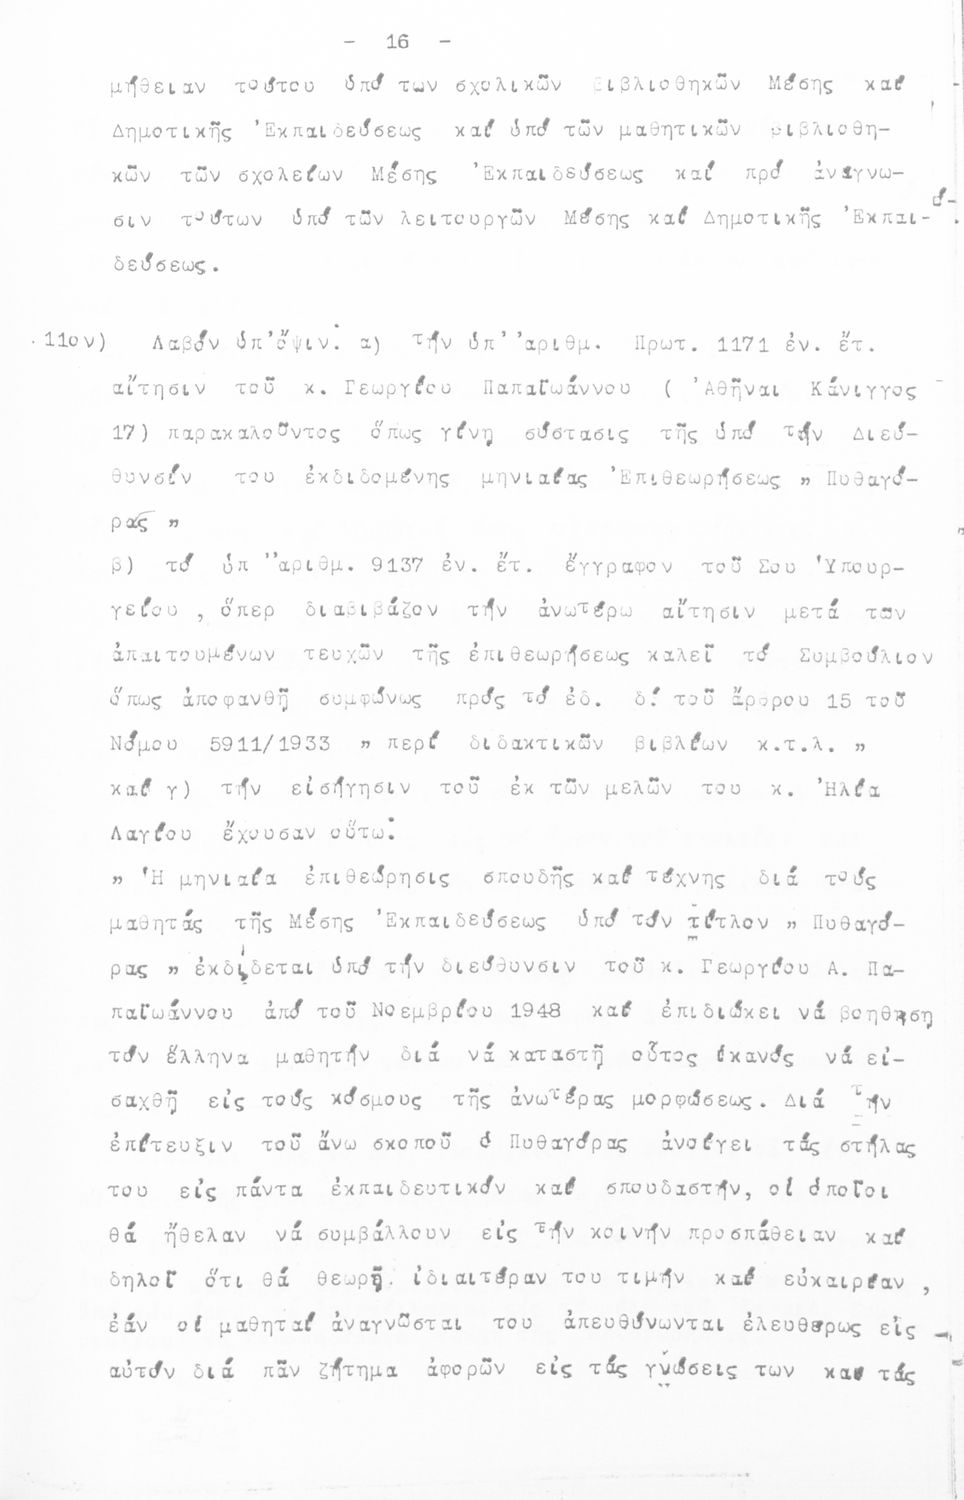 - 16 -
μήθειαν τούτου ὑπό των σχολικῶν βιβλιοθηκῶν Μέσης καί
Δημοτικῆς Ἐκπαιδεύσεως καί ὑπό τῶν μαθητικῶν βιβλιοθη-
κῶν τῶν σχολείων Μέσης Ἐκπαιδεύσεως καί πρό ἀνάγνω-
σιν τούτων ὑπό τῶν λειτουργῶν Μέσης καί Δημοτικῆς Ἐκπαι-
δεύσεως.
11ον) Λαβόν ὑπ' ὄψιν: α) τήν ὑπ' ἀριθμ. Πρωτ. 1171 ἐν. ἔτ.
αἴτησιν τοῦ κ. Γεωργίου Παπαϊωάννου ( Ἀθῆναι Κάνιγγος
17) παρακαλοῦντος ὅπως γίνῃ σύστασις τῆς ὑπό τήν Διεύ-
θυνσίν του ἐκδιδομένης μηνιαίας Ἐπιθεωρήσεως " Πυθαγό-
ρας "
β) τό ὑπ ἀριθμ. 9137 ἐν. ἔτ. ἔγγραφον τοῦ Σου Ὑπουρ-
γείου , ὅπερ διαβιβάζον τήν ἀνωτέρω αἴτησιν μετά των
ἀπαιτουμένων τευχῶν τῆς ἐπιθεωρήσεως καλεῖ τό Συμβούλιον
ὅπως ἀποφανθῇ συμφώνως πρός τό ἐδ. δ.' τοῦ ἄρθρου 15 τοῦ
Νόμου 5911/1933 " περί διδακτικῶν βιβλίων κ.τ.λ. "
καί γ) τήν εἰσήγησιν τοῦ ἐκ τῶν μελῶν του κ. Ἠλία
Λαγίου ἔχουσαν οὕτω:
" Ἡ μηνιαία ἐπιθεώρησις σπουδῆς καί τέχνης διά τούς
μαθητάς τῆς Μέσης Ἐκπαιδεύσεως ὑπό τόν τίτλον " Πυθαγό-
ρας " ἐκδίδεται ὑπό τήν διεύθυνσιν τοῦ κ. Γεωργίου Α. Πα-
παϊωάννου ἀπό τοῦ Νοεμβρίου 1948 καί ἐπιδιώκει νά βοηθήση
τόν ἕλληνα μαθητήν διά νά καταστῇ οὗτος ἱκανός νά εἰ-
σαχθῇ εἰς τούς κόσμους τῆς ἀνωτέρας μορφώσεως. Διά τήν
ἐπίτευξιν τοῦ ἄνω σκοποῦ ὁ Πυθαγόρας ἀνοίγει τάς στήλας
του εἰς πάντα ἐκπαιδευτικόν καί σπουδαστήν, οἱ ὁποῖοι
θά ἤθελαν νά συμβάλλουν εἰς τήν κοινήν προσπάθειαν καί
δηλοῖ ὅτι θά θεωρῇ ἰδιαιτέραν του τιμήν καί εὐκαιρίαν ,
ἐάν οἱ μαθηταί ἀναγνῶσται του ἀπευθύνωνται ἐλευθέρως εἰς
αὐτόν διά πᾶν ζήτημα ἀφορῶν εἰς τάς γνώσεις των και τάς